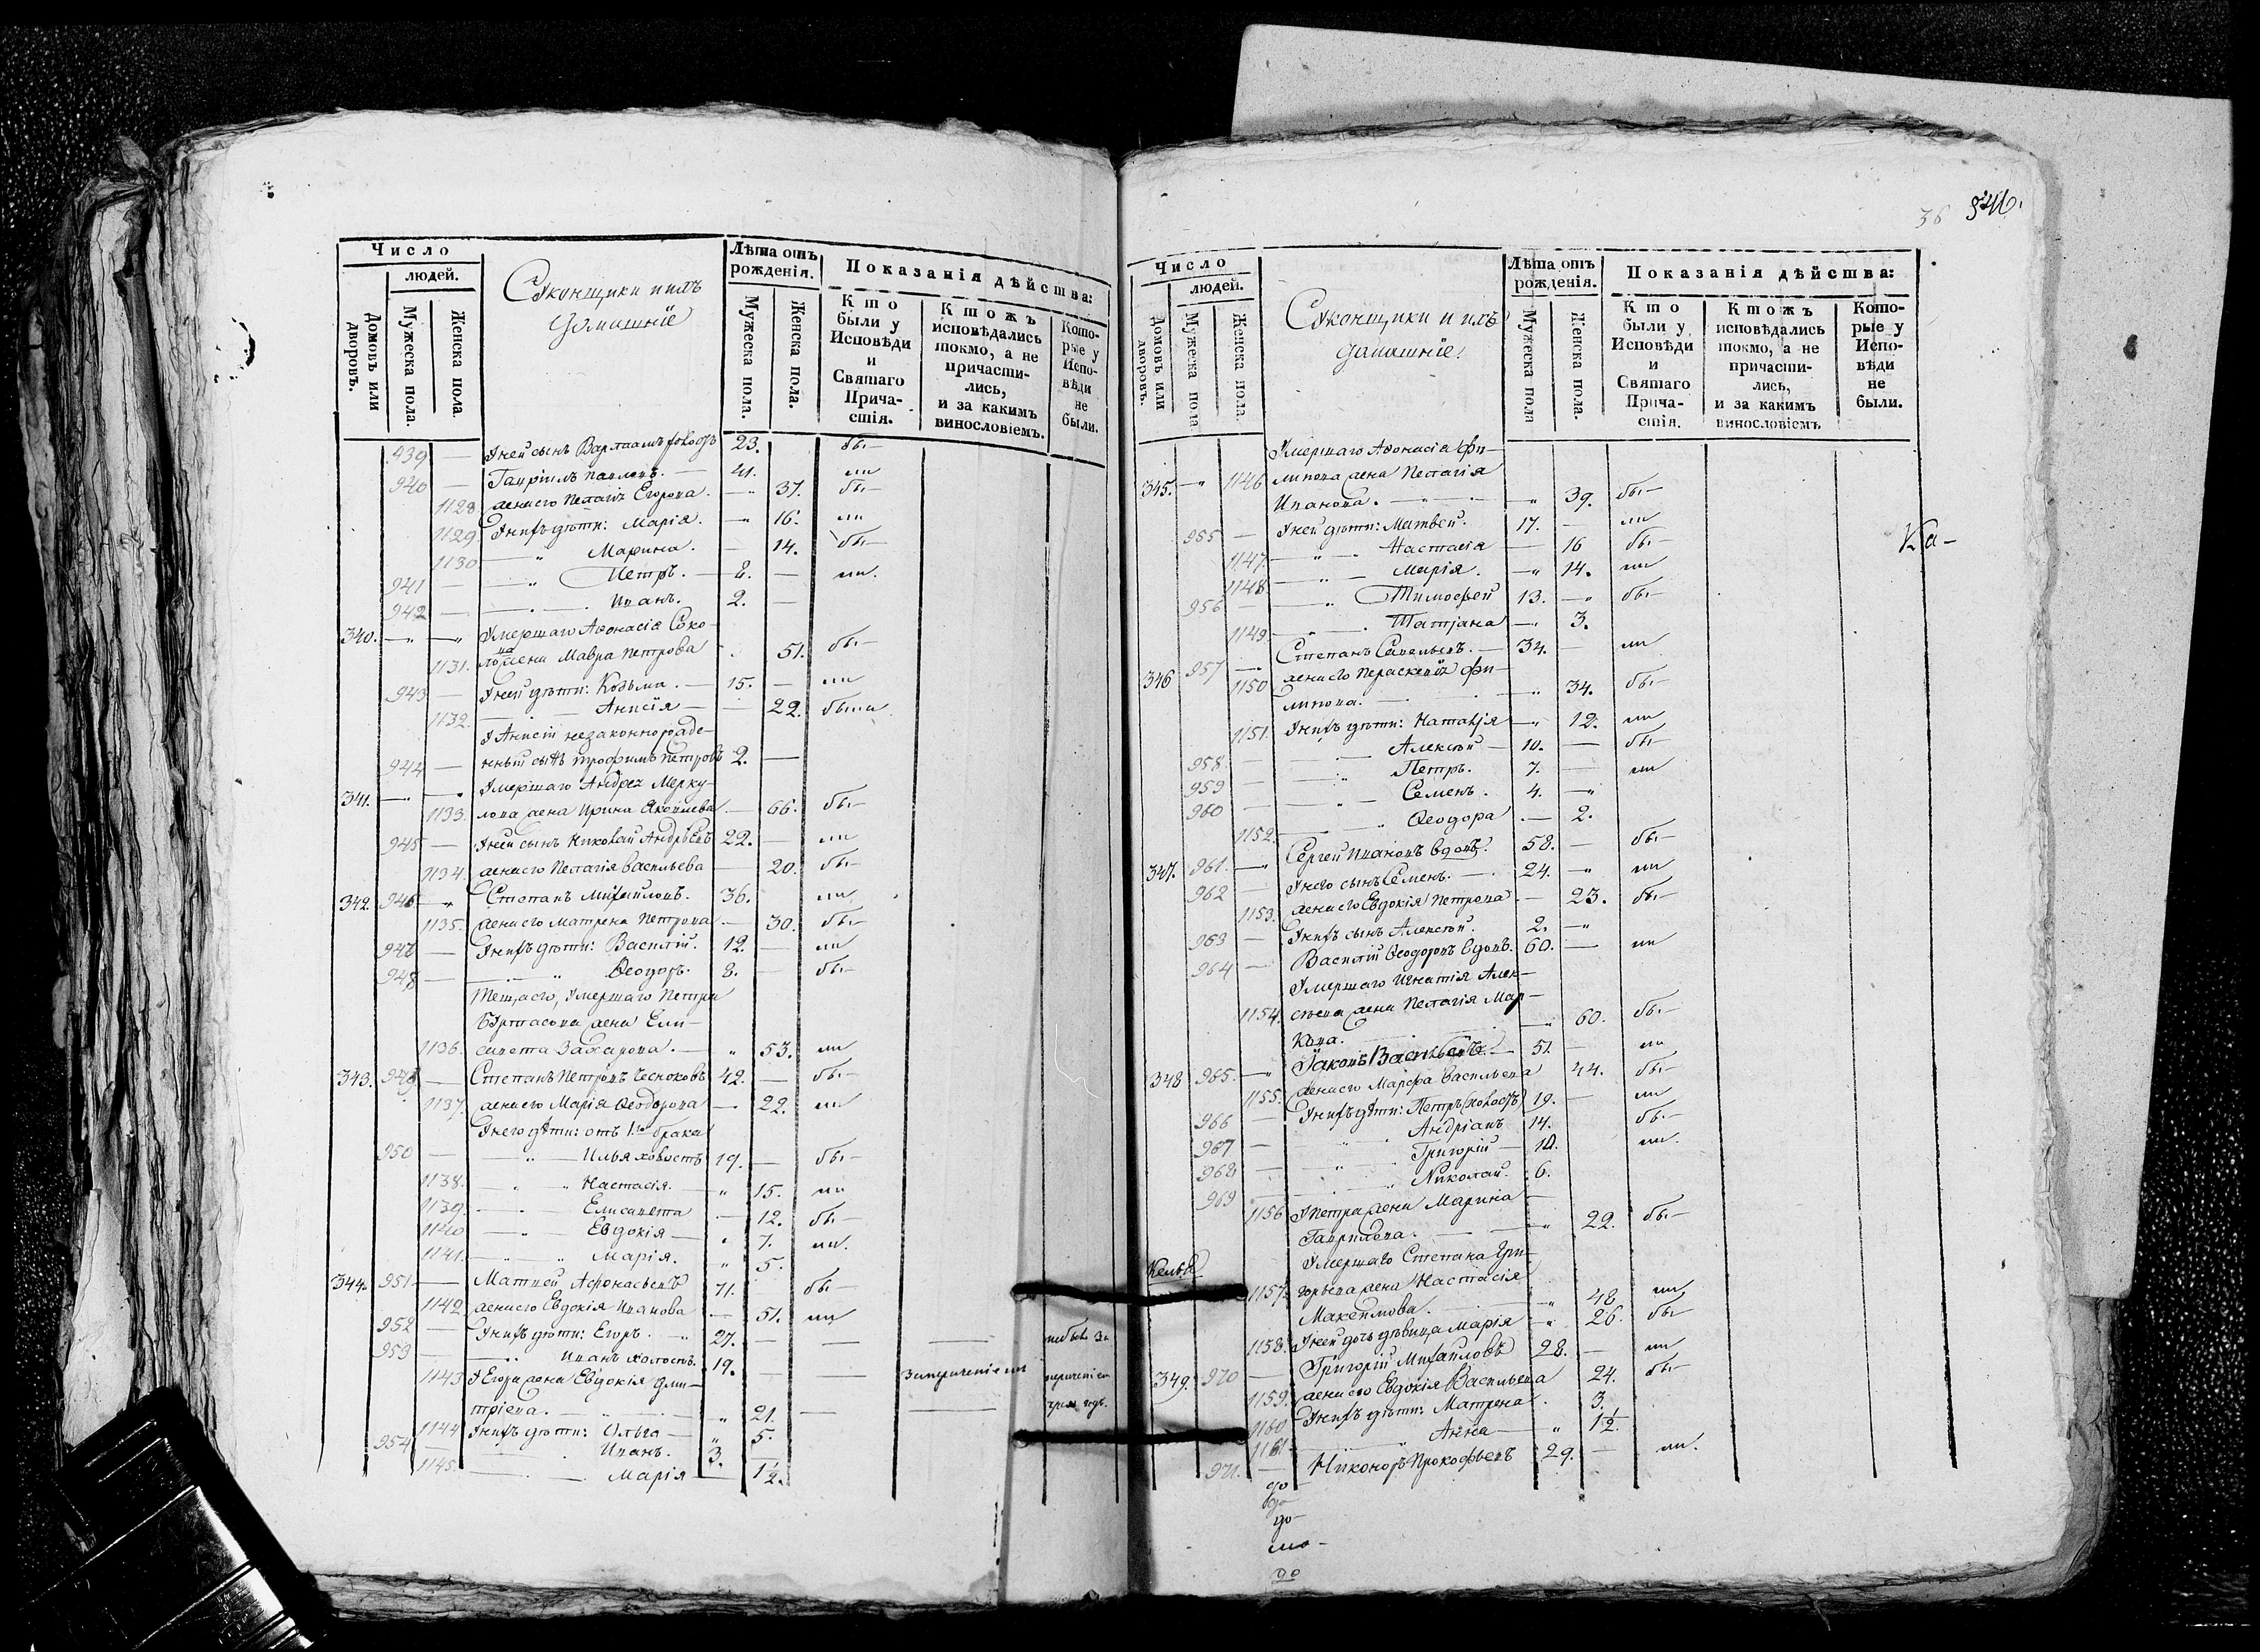 Число
людей.
Домовъ или дворовъ.
Мужеска пола
Женска пола.
домашніе
Лѣта отъ рожденія.
Мужеска пола.
Женска пола.
Показанія дѣйства:
Кто были у Исповѣди и Святаго Причастія.
Ктожъ исповѣдались токмо, а не причастились, и за какимъ винословіемъ.
Которые у Исповѣди не были.
939 — У ней сынъ Варлаамъ холостъ 23. бы—
940 — Гавріилъ Павловъ. — 41. ли
1128 жена его Пелагія Егорова. — 37. бы—
1129 У нихъ дѣти: Марія. — 16. ли
1130 — " Марина. — 14. бы—
941 — " Петръ. — 8. — ли.
942 — Иванъ. 2. —
340. — " — " Умершаго Афонасія Соко-
1131. лова жена Мавра Петрова 51. бы—
943 — У ней дѣти: Козьма. — 15. — ли
1132. — Анисія — 22. были
У Анисіи незаконнорожде-
944 — нный сынъ Трофимъ Петровъ 2. —
341. — " — " Умершаго Андрея Мерку-
1133. лова жена Ирина Яковлева — 66. бы—
945 — У ней сынъ Николай Андрѣевъ 22. — ли
1134. жена его Пелагія Васильева — 20. бы—
342. 946 — " Степанъ Михайловъ. 36. ли
1135. жена его Матрена Петрова — 30. бы—
947 — У нихъ дѣти: Василій. 12. — ли
948 — " Ѳеодоръ. 8. — бы—
Теща его, Умершаго Петра
жена Ели-
1136. савета Захарова. — " 53. ли
343. 949 — Степанъ Петровъ Чесноковъ 42. — бы—
1137. жена его Марія Ѳеодорова — 22. ли
У него дѣти: отъ 1го брака
950 — " — Илья холостъ 19. — бы—
1138. — " — " Настасія. — " 15. ли
1139. — Елисавета — 12. бы—
1140 — " — Евдокія — " 7. ли.
1141. — " — " Марія. " 5.
344. 951 — Матвей Афонасьевъ 71. бы—
1142 жена его Евдокія Иванова — 51. ли
952 — У нихъ дѣти: Егоръ. — " 27. — — — не бы за
953 — " Иванъ холостъ. 19. — —
1143 У Егора жена Евдокія Дми-
тріева. — " 21. — —
1144 У нихъ дѣти: Ольга — " 5.
954 — Иванъ. 3.
1145. — Марія — 1½.
36 546.
Число
людей.
Домовъ или дворовъ.
Мужеска пола
Женска пола.
домашніе.
Лѣта отъ рожденія.
Мужеска пола
Женска пола.
Показанія дѣйства:
Кто были у Исповѣди и Святаго Причастія.
Ктожъ исповѣдались токмо, а не причастились, и за какимъ винословіемъ
Которые у Исповѣди не были.
Умершаго Афонасія Фи-
345. — " 1146 липова жена Пелагія
Иванова. — " 39. бы—
955 — У ней дѣти: Матвей. 17. — ли
1147. — " — Настасія — 16 бы—
1148 — " — Марія. — " 14. ли
956 — " Тимофей 13. — " бы—
1149 — " — Татіана — " 3.
346 957 — " Степанъ Савельевъ. — 34. — ли
1150 жена его Параскевія Фи-
липова. — " 34. бы—
1151. У нихъ дѣти: Наталія — " 12. ли
958 — Алексѣй — 10. — бы—
959 — " Петръ. 7. — ли
960 — " — Семенъ. 4. — "
1152. — " Ѳеодора — 2.
347. 961. — " Сергей Ивановъ вдовъ. 58. — бы—
962 — У него сынъ Семенъ. — 24. — " ли
1153. жена его Евдокія Петрова — 23. бы—
963 — У нихъ сынъ Алексѣй. 2. — "
964 — Василій Ѳеодоровъ вдовъ. 60. — ли
Умершаго Игнатія Алек-
1154. сѣева жена Пелагія Мар-
кова. — " 60. бы—
348 965. — " Іаковъ Васильевъ — 51. — ли
1155. жена его Марфа Васильева 44. бы—
966 — У нихъ дѣти: Петръ (холостъ) 19. — ли
967 — " Андріанъ 14. бы—
968 — " Григорій — 10. ли.
969 — " Николай. 6.
1156 У Петра жена Марина
Гаврилова. — " 22. бы—
Умершаго Степана Гри-
1157. горьева жена Настасія
Максимова. — " 48 ли
1158. У ней дочь дѣвица Марія — " 26. бы
349. 970 — Григорій Михайловъ 28. — ли
1159. жена его Евдокія Васильева 24. бы—
1160 У нихъ дѣти: Матрена. 3.
1161 — " Анна — " 1½
971. — Никоноръ Прокофьевъ 29. — ли.
Ка-
до-
до-
до-
мо-
до